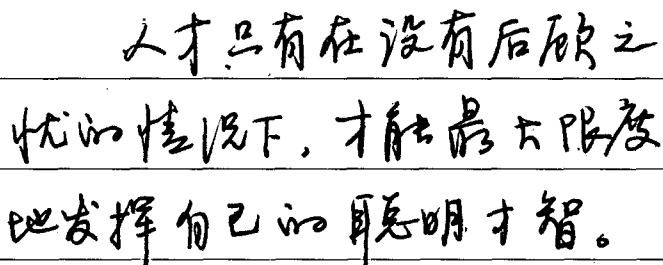 人才只有在没有后顾之
忧的情况下,才能最大限度
地发挥自己的聪明才智。